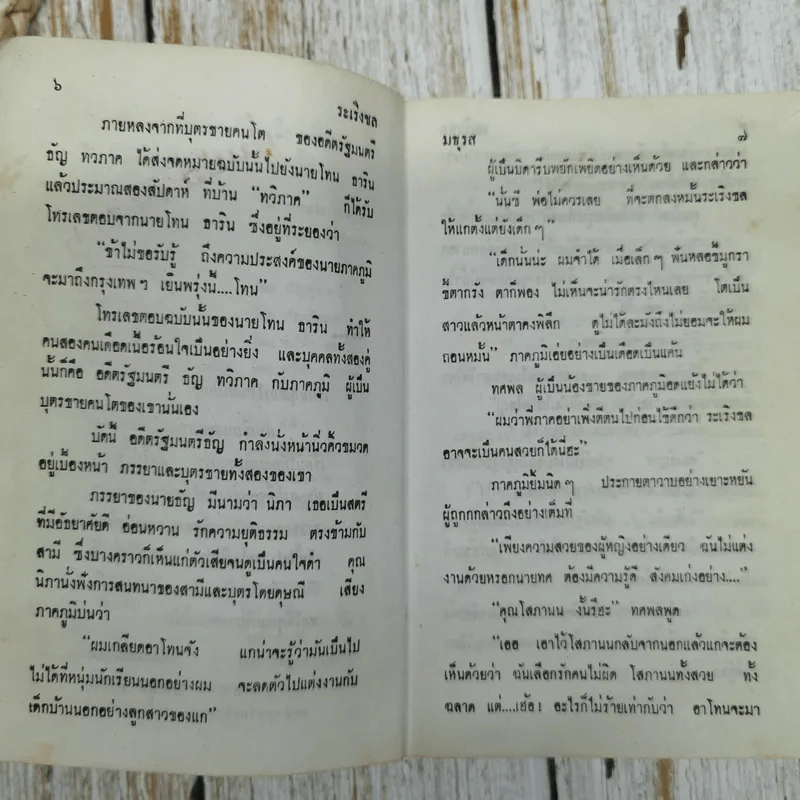 ๖
ระเริงชล
ภายหลงจากที่บุตรชายคนโต ของอดีตรัฐมนตรี
ธัญ ทวภาค ได้ส่งจดหมายฉบับนั้นไปยังนายโทน ธาริน
แล้วประมาณสองสัปดาห์ ที่บ้าน “ทวิภาค” ก็ได้รับ
โทรเลขตอบจากนายโทน ธาริน ซึ่งอยู่ที่ระยองว่า
“ข้าไม่ขอรับรู้ ถึงความประสงค์ของนายภาคภูมิ
จะมาถึงกรุงเทพฯ เย็นพรุ่งนี้....โทน”
โทรเลขตอบฉบับนั้นของนายโทน ธาริน ทำให้
คนสองคนเดือดเนื้อร้อนใจเป็นอย่างยิ่ง และบุคคลทั้งสองคู่
นั้นก็คือ อดีตรัฐมนตรี ธัญ ทวิภาค กับภาคภูมิ ผู้เป็น
บุตรชายคนโตของเขานั่นเอง
บัดนี้ อดีตรัฐมนตรีธัญ กำลังนั่งหน้านิ่วคิ้วขมวด
อยู่เบื้องหน้า ภรรยาและบุตรชายทั้งสองของเขา
ภรรยาของนายธัญ มีนามว่า นิภา เธอเป็นสตรี
ที่มีอัธยาศัยดี อ่อนหวาน รักความยุติธรรม ตรงข้ามกับ
สามี ซึ่งบางคราวก็เห็นแก่ตัวเสียจนดูเป็นคนใจดำ คุณ
นิภานั่งฟังการสนทนาของสามีและบุตรโดยดุษณี เสียง
ภาคภูมิบ่นว่า
“ผมเกลียดอาโทนจัง แกน่าจะรู้ว่ามันเป็นไป
ไม่ได้ที่หนุ่มนักเรียนนอกอย่างผม จะลดตัวไปแต่งงานกับ
เด็กบ้านนอกอย่างลูกสาวของแก”
มธุรส
๗
ผู้เป็นบิดารีบพยักเพยิดอย่างเห็นด้วย และกล่าวว่า
“นั่นซี พ่อไม่ควรเลย ที่จะตกลงหมั้นระเริงชล
ให้แกตั้งแต่ยังเด็ก ๆ”
“เด็กนั้นน่ะ ผมจำได้ เมื่อเล็ก ๆ ฟันหลอขี้มูกรา
ขี้ตากรัง ตาก็พอง ไม่เห็นจะน่ารักตรงไหนเลย โตเป็น
สาวแล้วหน้าตาคงพิลึก ดูไม่ได้ละมังถึงไม่ยอมจะให้ผม
ถอนหมั้น” ภาคภูมิเอ่ยอย่างเป็นเดือดเป็นแค้น
ทศพล ผู้เป็นน้องชายของภาคภูมิอดแย้งไม่ได้ว่า
“ผมว่าพี่ภาคอย่าเพิ่งตีตนไปก่อนไข้ดีกว่า ระเริงชล
อาจจะเป็นคนสวยก็ได้นี่ฮะ”
ภาคภูมิยิ้มนิด ๆ ประกายตาวาบอย่างเยาะหยัน
ผู้ถูกกกล่าวถึงอย่างเต็มที่
“เพียงความสวยของผู้หญิงอย่างเดียว ฉันไม่แต่ง
งานด้วยหรอกนายทศ ต้องมีความรู้ดี สังคมเก่งอย่าง....”
“คุณโสภานน งั้นรึฮะ” ทศพลพูด
“เออ เอาไว้โสภานนกลับจากนอกแล้วแกจะต้อง
เห็นด้วยว่า ฉันเลือกรักคนไม่ผิด โสภานนทั้งสวย ทั้ง
ฉลาด แต่....เฮ้อ! อะไรก็ไม่ร้ายเท่ากับว่า อาโทนจะมา